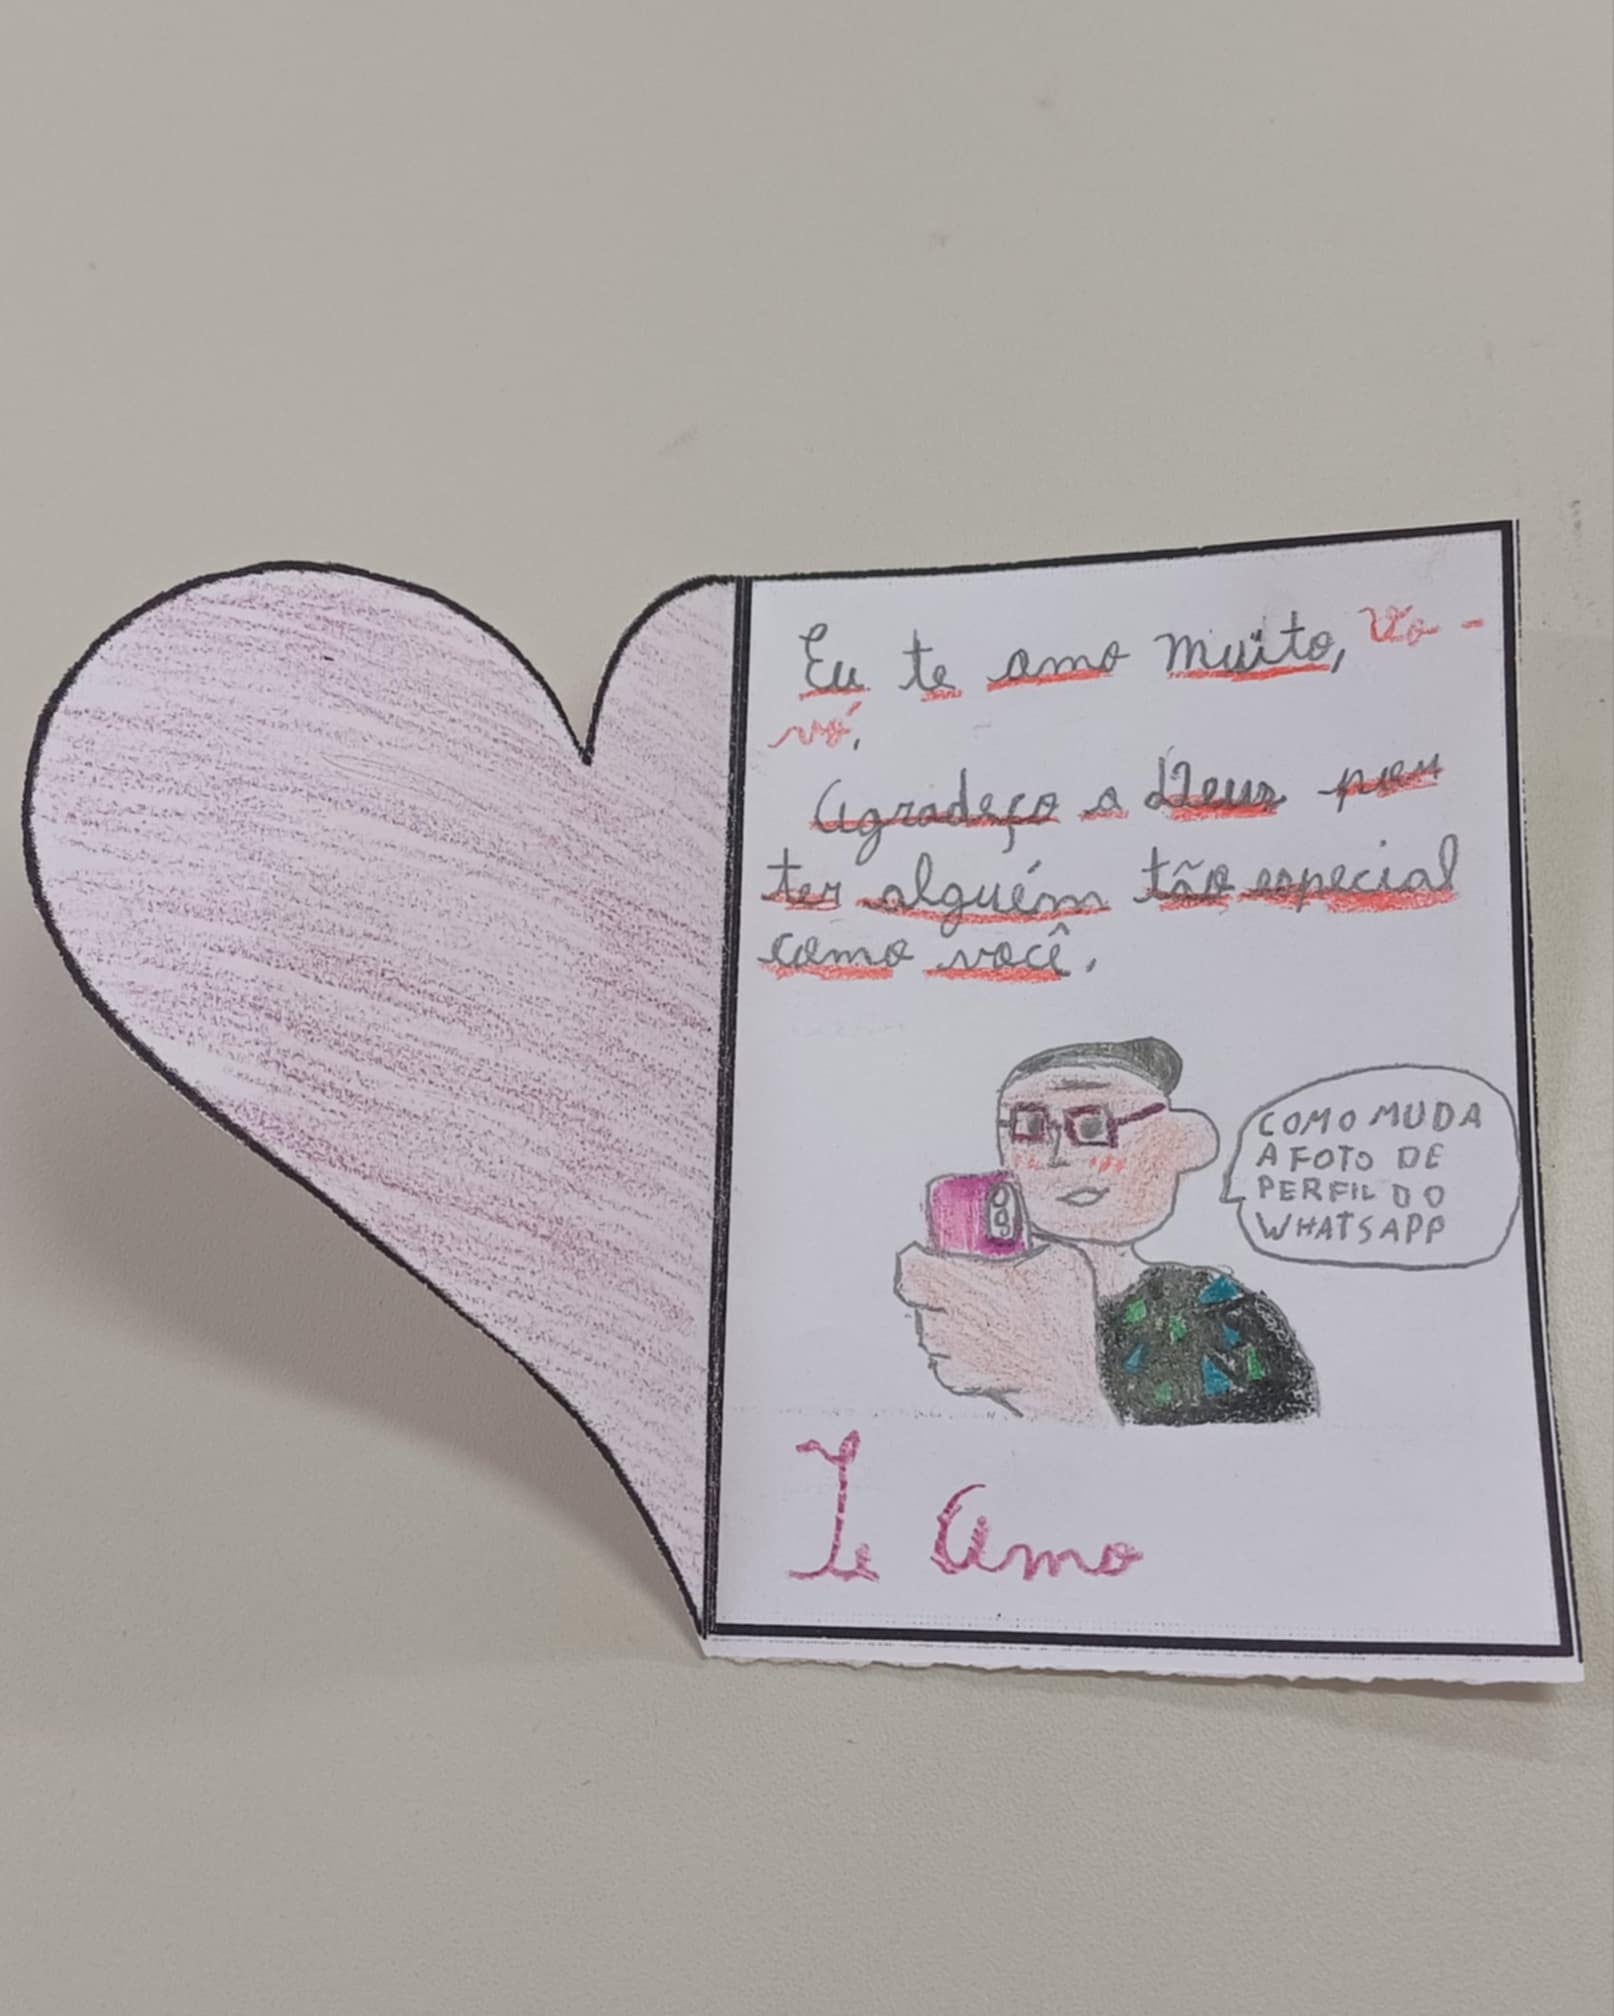 Eu te amo muito, Vo-
vó.
Agradeço a Deus por
ter alguém tão especial
como você.
COMO MUDA
A FOTO DE
PERFIL DO
WHATSAPP
Te Amo